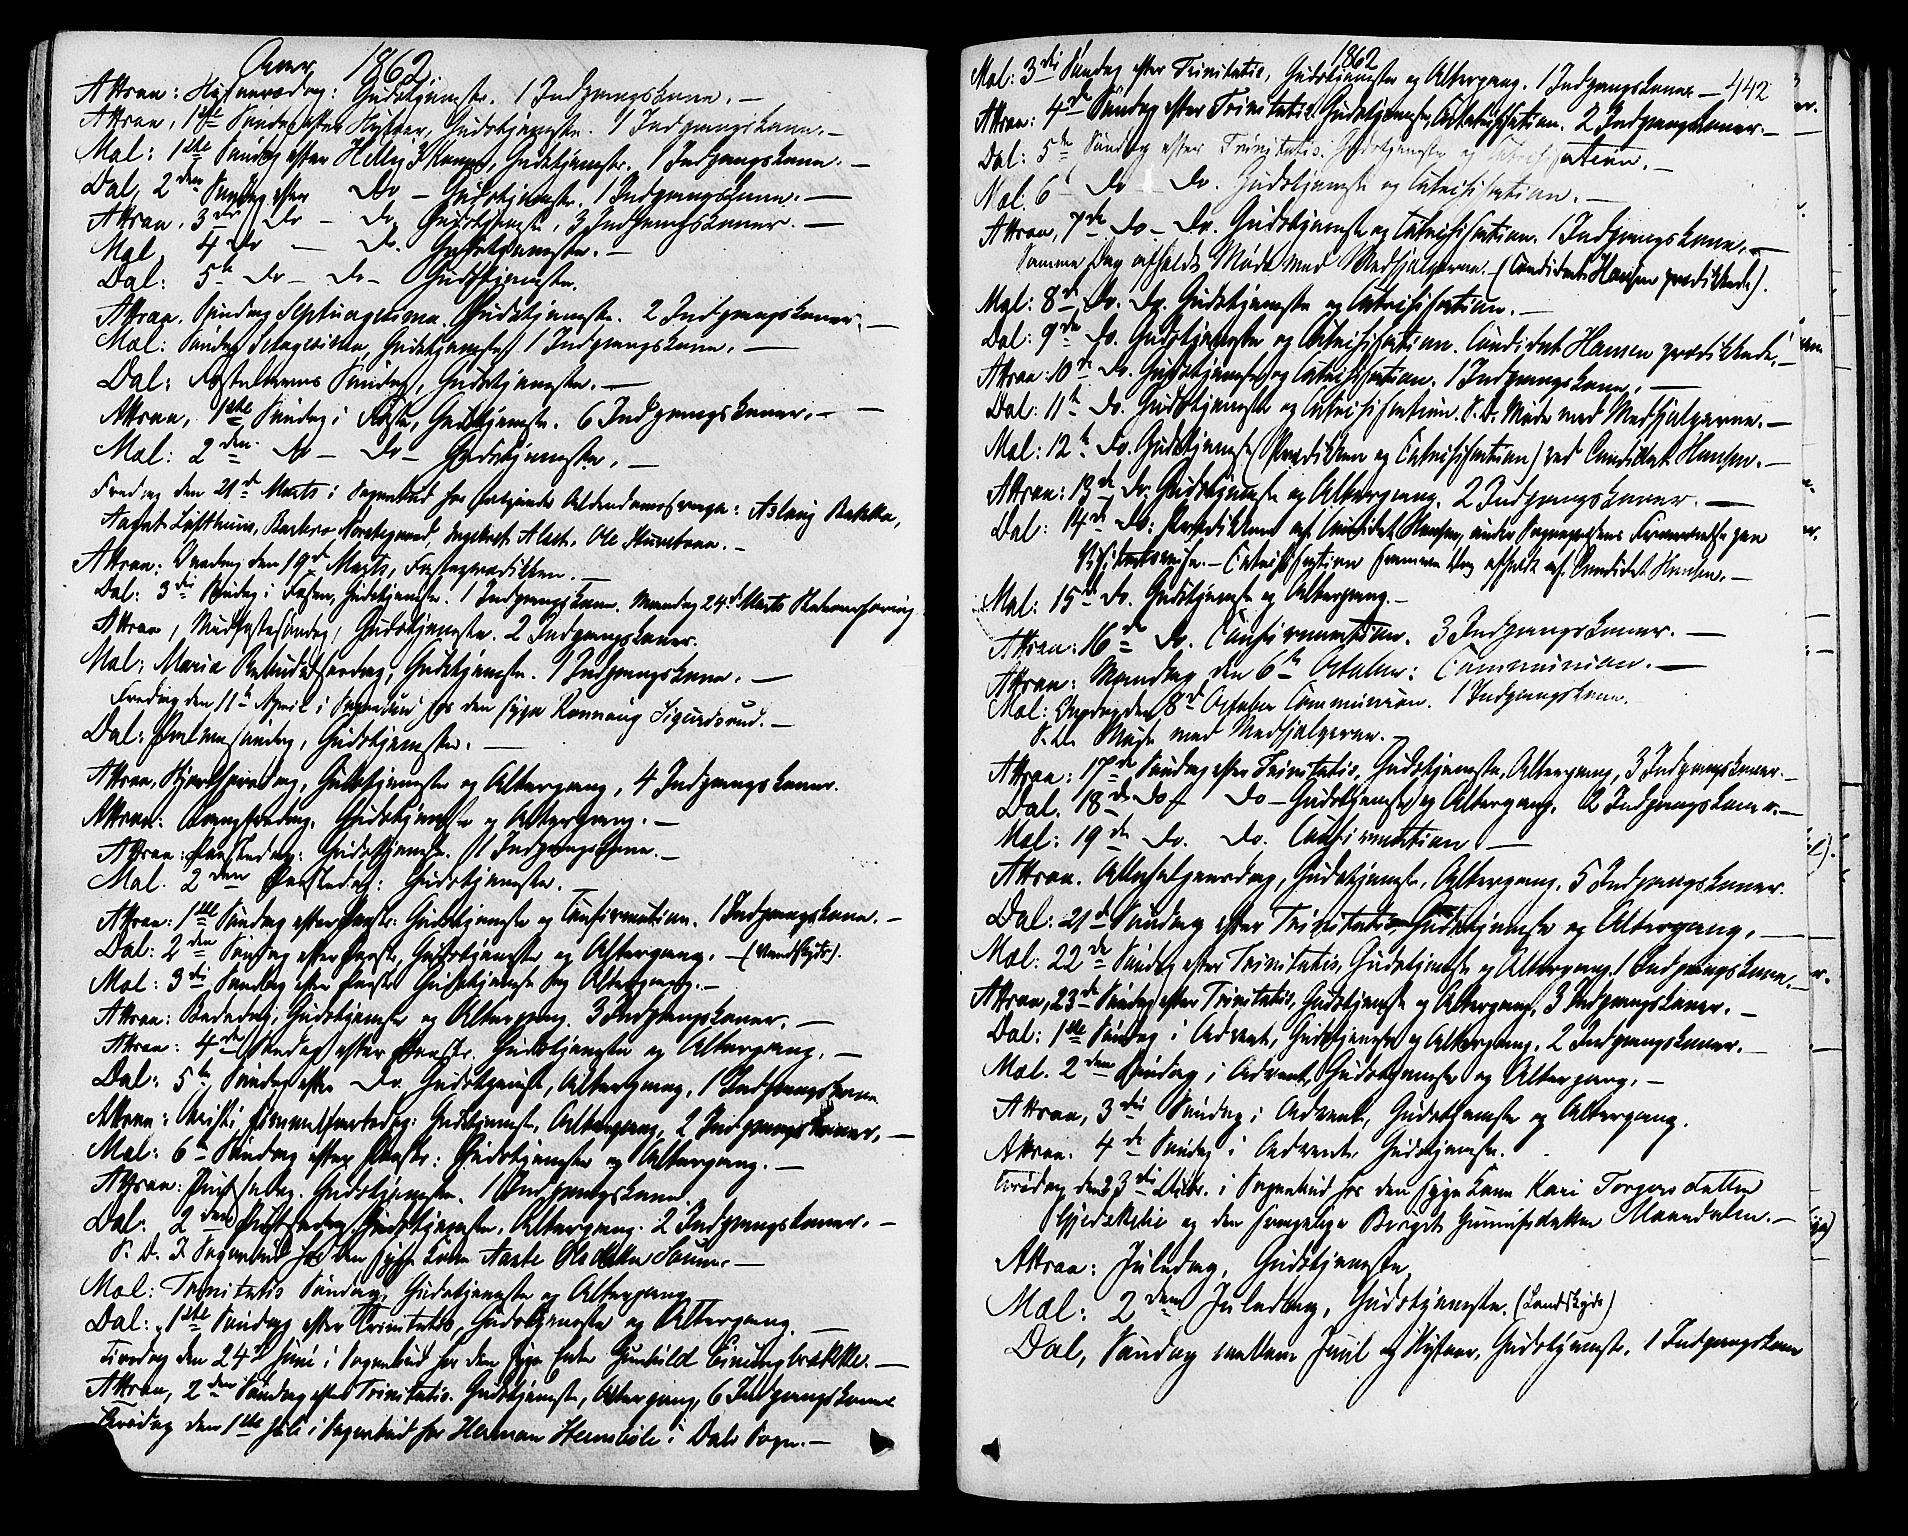 Anno 1862
Attraa: Nytaarsdag: Gudstjeneste. 1 Indgangskone. —
Attraa, 1ste Søndag efter Nytaar, Gudstjeneste. 1 Indgangskone. —
Mæl: 1ste Søndag efter Hellig 3 Konger, Gudstjeneste. 1 Indgangskone. —
Dal, 2den Søndag efter Do — Gudstjeneste. 1 Indgangskone. —
Attraa, 3die Do — Do. Gudstjeneste, 3 Indgangskoner. —
Mæl, 4 Do — Do. Gudstjeneste. —
Dal: 5te Do — Do — Gudstjeneste.
Attraa. Søndag Septuagesima. Gudstjeneste. 2 Indgangskoner. —
Mæl: Søndag Sexagesima, Gudstjeneste 1 Indgangskone. —
Dal: Fastelavns Søndag, Gudstjeneste. —
Attraa, 1ste Søndag i Faste, Gudstjeneste. 6 Indgangskoner. —
Mæl: 2den Do — Do — Gudstjeneste. —
Fredag den 21de Marts i Sognebud hos følgende : Aslaug Bakka,
Aagat Løfthuus, Barbro , Ole
Attraa: Onsdag den 19de Marts, Fasteprædiken. —
Dal: 3die Søndag i Fasten, Gudstjeneste. 1 Indgangskone. Mandag 24de Marts
Attraa, Midfastesøndag, Gudstjeneste. 2 Indgangskoner.
Mæl: Maria Bebudelsesdag, Gudstjeneste. 1 Indgangskone. —
Fredag den 11te April i Sognebud hos den syge Rannaug Sigurdsrud. —
Dal: Palmesøndag, Gudstjeneste. —
Attraa, Skjærthorsdag, Gudstjeneste og Altergang, 4 Indgangskoner.
Attraa: Langfredag. Gudstjeneste og Altergang. —
Attraa: Paaskedag: Gudstjeneste. 1 Indgangskone. —
Mæl. 2den Paaskedag: Gudstjeneste. —
Attraa: 1ste Søndag efter Paaske: Gudstjeneste og Confirmation. 1 Indgangskone. —
Dal: 2den Søndag efter Paaske, Gudstjeneste og Altergang. —
Mæl: 3die Søndag efter Paaske Gudstjeneste og Altergang. —
Attraa: Bededag, Gudstjeneste og Altergang. 3 Indgangskoner. —
Attraa: 4de Søndag efter Paaske. Gudstjeneste og Altergang. —
Dal: 5te Søndag efter Do. Gudstjeneste, Altergang, 1 Indgangskone
Attraa: Christi Himmelfartsdag: Gudstjeneste, Altergang, 2 Indgangskoner. —
Mæl: 6te Søndag efter Paaske: Gudstjeneste og Altergang. —
Attraa: Pintsedag. Gudstjeneste. 1 Indgangskone.
Dal: 2den Pintsedag, Gudstjeneste, Altergang. 2 Indgangskoner. —
S. D. I Sognebud hos den syge Kone Aaste Olsdatter —
Mæl: Trinitatis Søndag, Gudstjeneste og Altergang
Dal: 1ste Søndag efter Trinitatis, Gudstjeneste og Altergang. —
Tirsdag den 24de Juni i Sognebud hos den syge Enke Gunhild —
Attraa, 2den Søndag efter Trinitatis. Gudstjeneste, Altergang, 6 Indgangskoner
Tirsdag den 1ste Juli i Sognebud hos Herman i Dals Sogn. —
1862
442
Mæl: 3die Søndag efter Trinitatis, Gudstjeneste og Altergang. 1 Indgangskone —
Attraa: 4de Søndag efter Trinitatis. Gudstjeneste, Catechisation. 2 Indgangskoner. —
Dal: 5te Søndag efter Trinitatis. Gudstjeneste og Catechisation. —
Mæl. 6te Do Do. Gudstjeneste og Catechisation. —
Attraa, 7de Do — Do. Gudstjeneste og Catechisation. 1 Indgangskone. —
Samme Dag afholdt Møde med Medhjælperne. (Candidat Hansen prædikede).
Mæl: 8de Do. Do. Gudstjeneste og Catechisation. —
Dal: 9de Do. Gudstjeneste og Catechisation. Candidat Hansen prædikede. —
Attraa: 10de Do. Gudstjeneste og Catechisation. 1 Indgangskone. —
Dal: 11te Do. Gudstjeneste og Catechisation. S. D. Møde med Medhjælperne. —
Mæl: 12te Do. Gudstjeneste (Prædiken og Catechisation) ved Candidat Hansen. —
Attraa: 13de Do. Gudstjeneste og Altergang. 2 Indgangskoner. —
Dal: 14de Do: Prædikede af Candidat Hansen, under Sognepræstens Fraværelse paa
— Catechisation samme Dag afholdt af Candidat Hansen. —
Mæl: 15de Do. Gudstjeneste og Altergang. —
Attraa: 16de Do. Confirmation. 3 Indgangskoner. —
Attraa: Mandag den 6te October: Communion. —
Mæl: Onsdag den 8de October Communion. 1 Indgangskone.
S. D. Møde med Medhjælperne. —
Attraa: 17de Søndag efter Trinitatis, Gudstjeneste, Altergang, 3 Indgangskoner. —
Dal. 18de Do Do — Gudstjeneste og Altergang. 2 Indgangskoner. —
Mæl: 19de Do. Do. Confirmation —
Attraa. Allehelgensdag, Gudstjeneste, Altergang, 5 Indgangskoner.
Dal: 21de Søndag efter Trinitatis Gudstjeneste og Altergang. —
Mæl: 22de Søndag efter Trinitatis, Gudstjeneste og Altergang. 1 Indgangskone. —
Attraa, 23de Søndag efter Trinitatis, Gudstjeneste og Altergang, 3 Indgangskoner. —
Dal: 1ste Søndag i Advent, Gudstjeneste og Altergang. 2 Indgangskoner. —
Mæl. 2den Søndag i Advent, Gudstjeneste og Altergang. —
Attraa, 3die Søndag i Advent, Gudstjeneste og Altergang.
Attraa. 4de Søndag i Advent. Gudstjeneste.
Tirsdag den 23die Decbr. i Sognebud hos den syge Kone Kari Torgersdatter
og den Birgit Gunulfsdatter Maandalen. —
Attraa: Juledag, Gudstjeneste.
Mæl: 2den Juledag, Gudstjeneste.
Dal, Søndag mellem Juul og Nytaar, Gudstjeneste. 1 Indgangskone